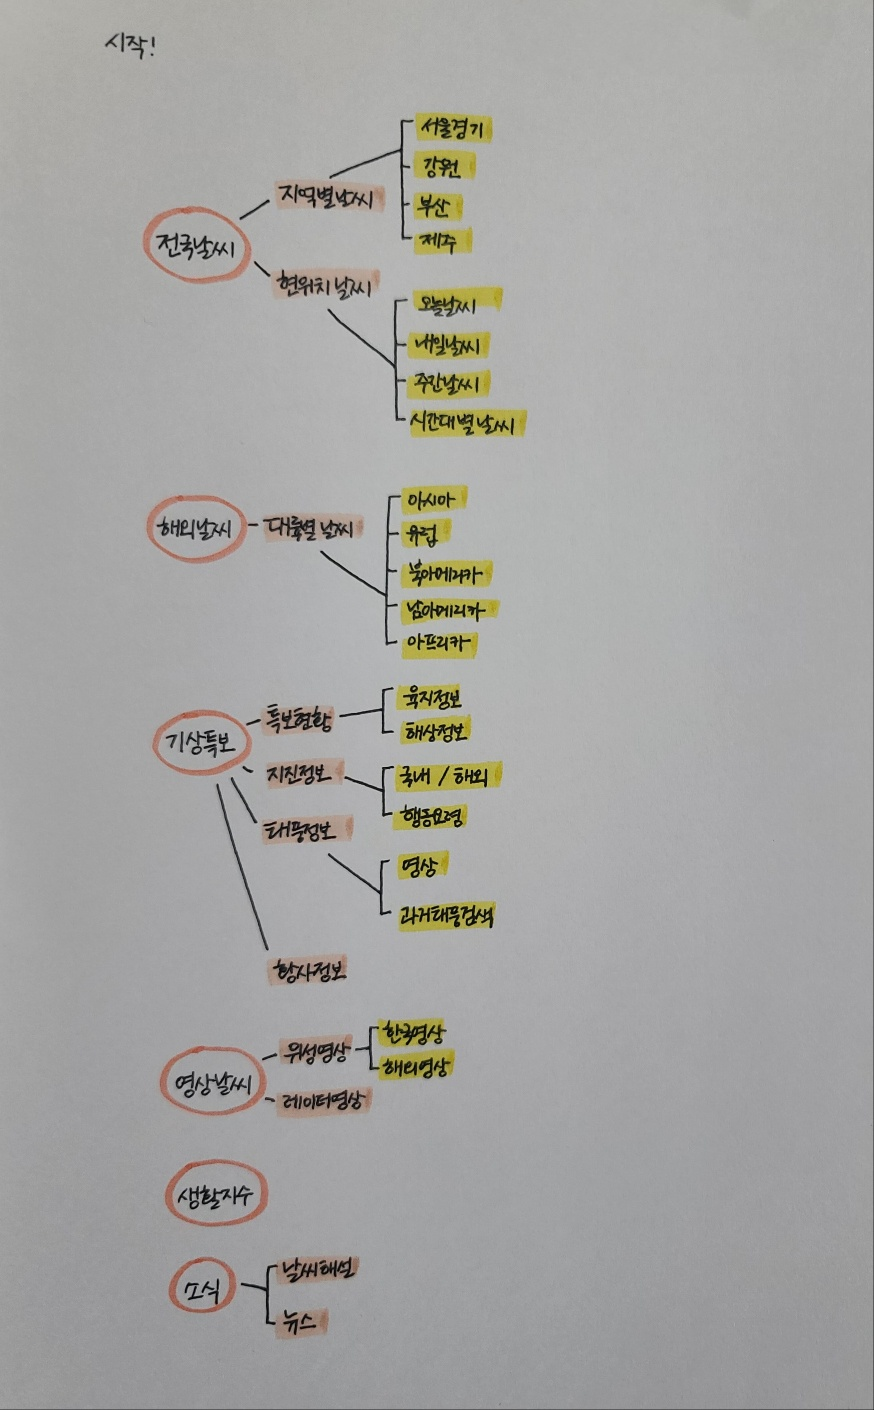 시작!
전국날씨
지역별날씨
서울경기
강원
부산
제주
현위치날씨
오늘날씨
내일날씨
주간날씨
시간대별날씨
해외날씨
대륙별날씨
아시아
유럽
북아메리카
남아메리카
아프리카
기상특보
특보현황
육지정보
해상정보
지진정보
국내 / 해외
행동요령
태풍정보
영상
과거태풍검색
황사정보
영상날씨
위성영상
한국영상
해외영상
레이더영상
생활지수
소식
날씨해설
뉴스